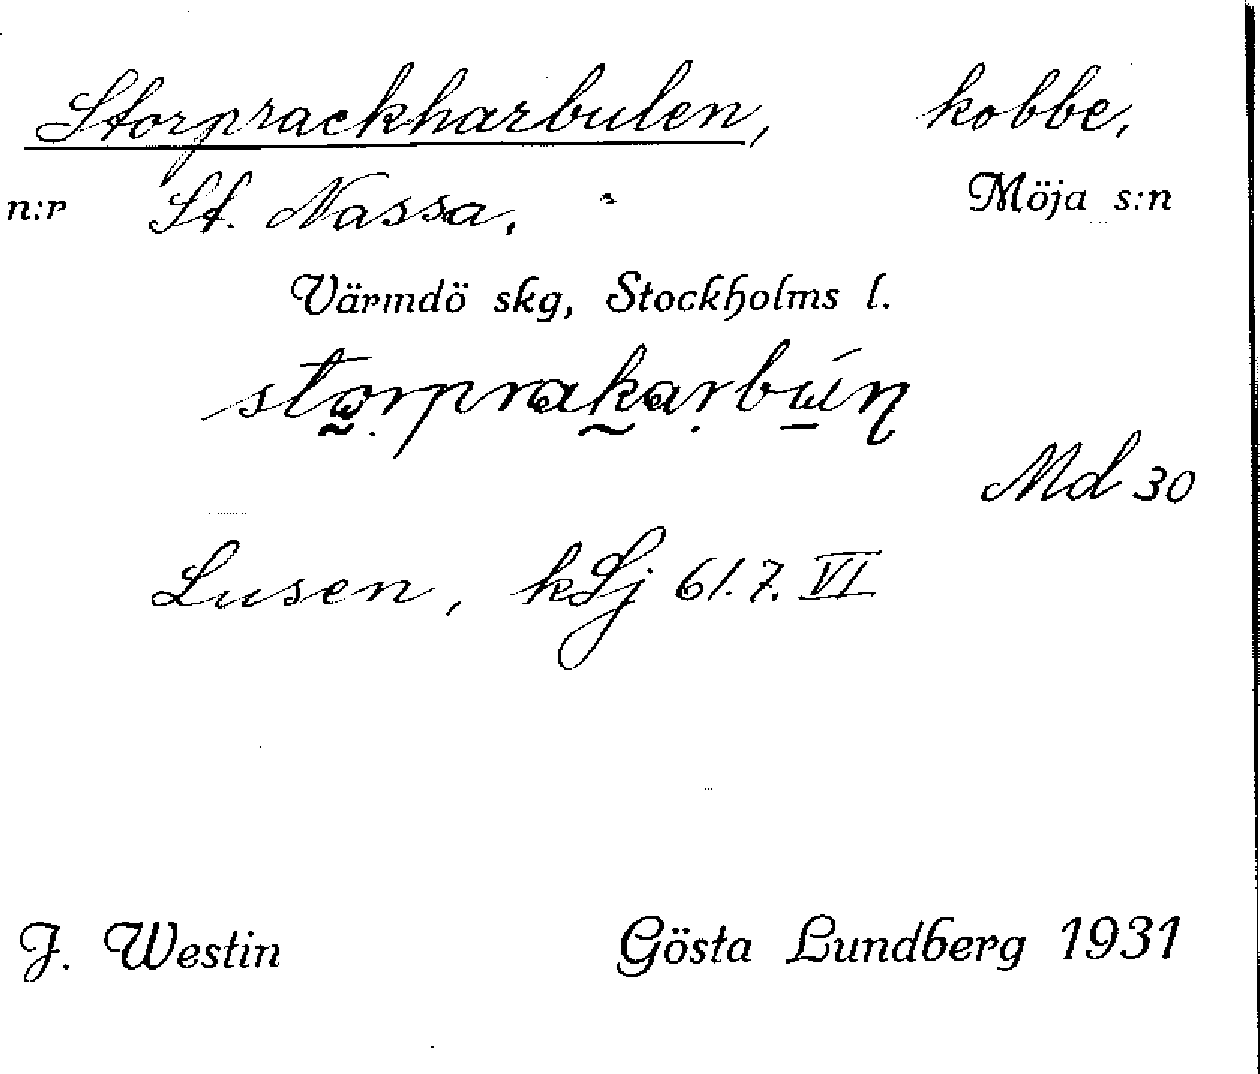 Storprackharbulen, kobbe,
n:r St. Nassa. Möja s:n
Värmdö skg, Stockholms l.
Md 30
Lusen, kLj 61.7. VI
J. Westin Gösta Lundberg 1931